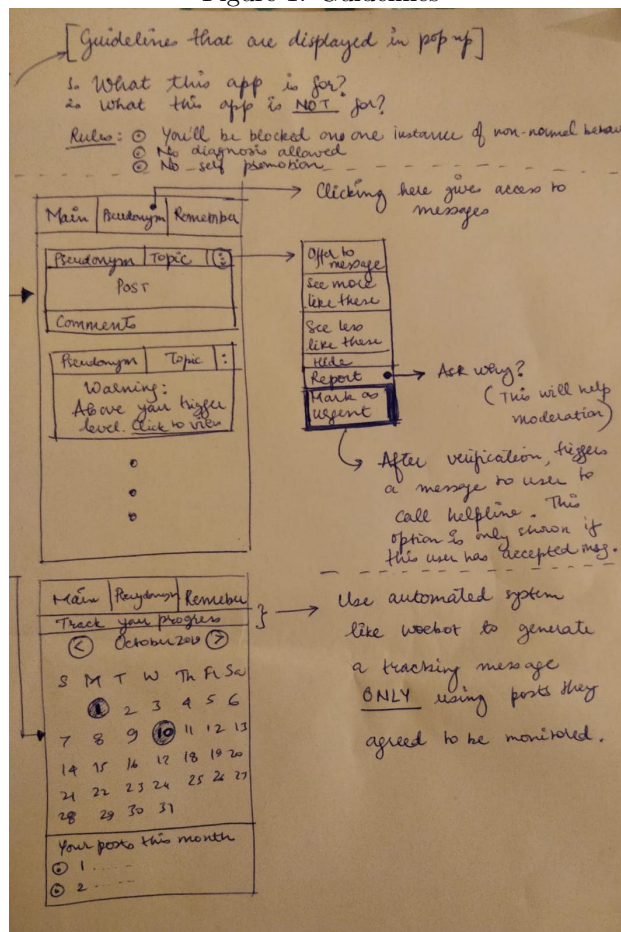 Figure 1: Guidelines
[Guidelines that are displayed in pop up]
1. What this app is for?
2. What this app is NOT for?
Rules: You'll be blocked one one instance of non-normal behav
No diagnosis allowed
No self promotion
Main Pseudonym Remember
Clicking here gives access to
messages
Pseudonym Topic :
POST
Comments
Pseudonym Topic :
Warning:
Above your trigger
level. Click to view
Offer to
message
See more
like these
See less
like these
Hide
Report
Mark as
urgent
Ask why?
(This will help
moderation)
After verification, triggers
a message to user to
call helpline. This
option is only shown if
this user has accepted msg.
Main Pseudonym Remember
Track your progress
< October >
S M T W Th Fr Sa
1 2 3 4 5 6
7 8 9 10 11 12 13
14 15 16 17 18 19 20
21 22 23 24 25 26 27
28 29 30 31
Your posts this month
1 .....
2 .....
Use automated system
like woebot to generate
a tracking message
ONLY using posts they
agreed to be monitored.